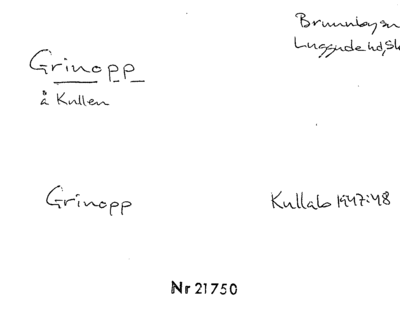 Brunnby sn
Luggude hd, Sk
Grinopp
å Kullen
Grinopp
Kullab 1947:48
Nr 21750